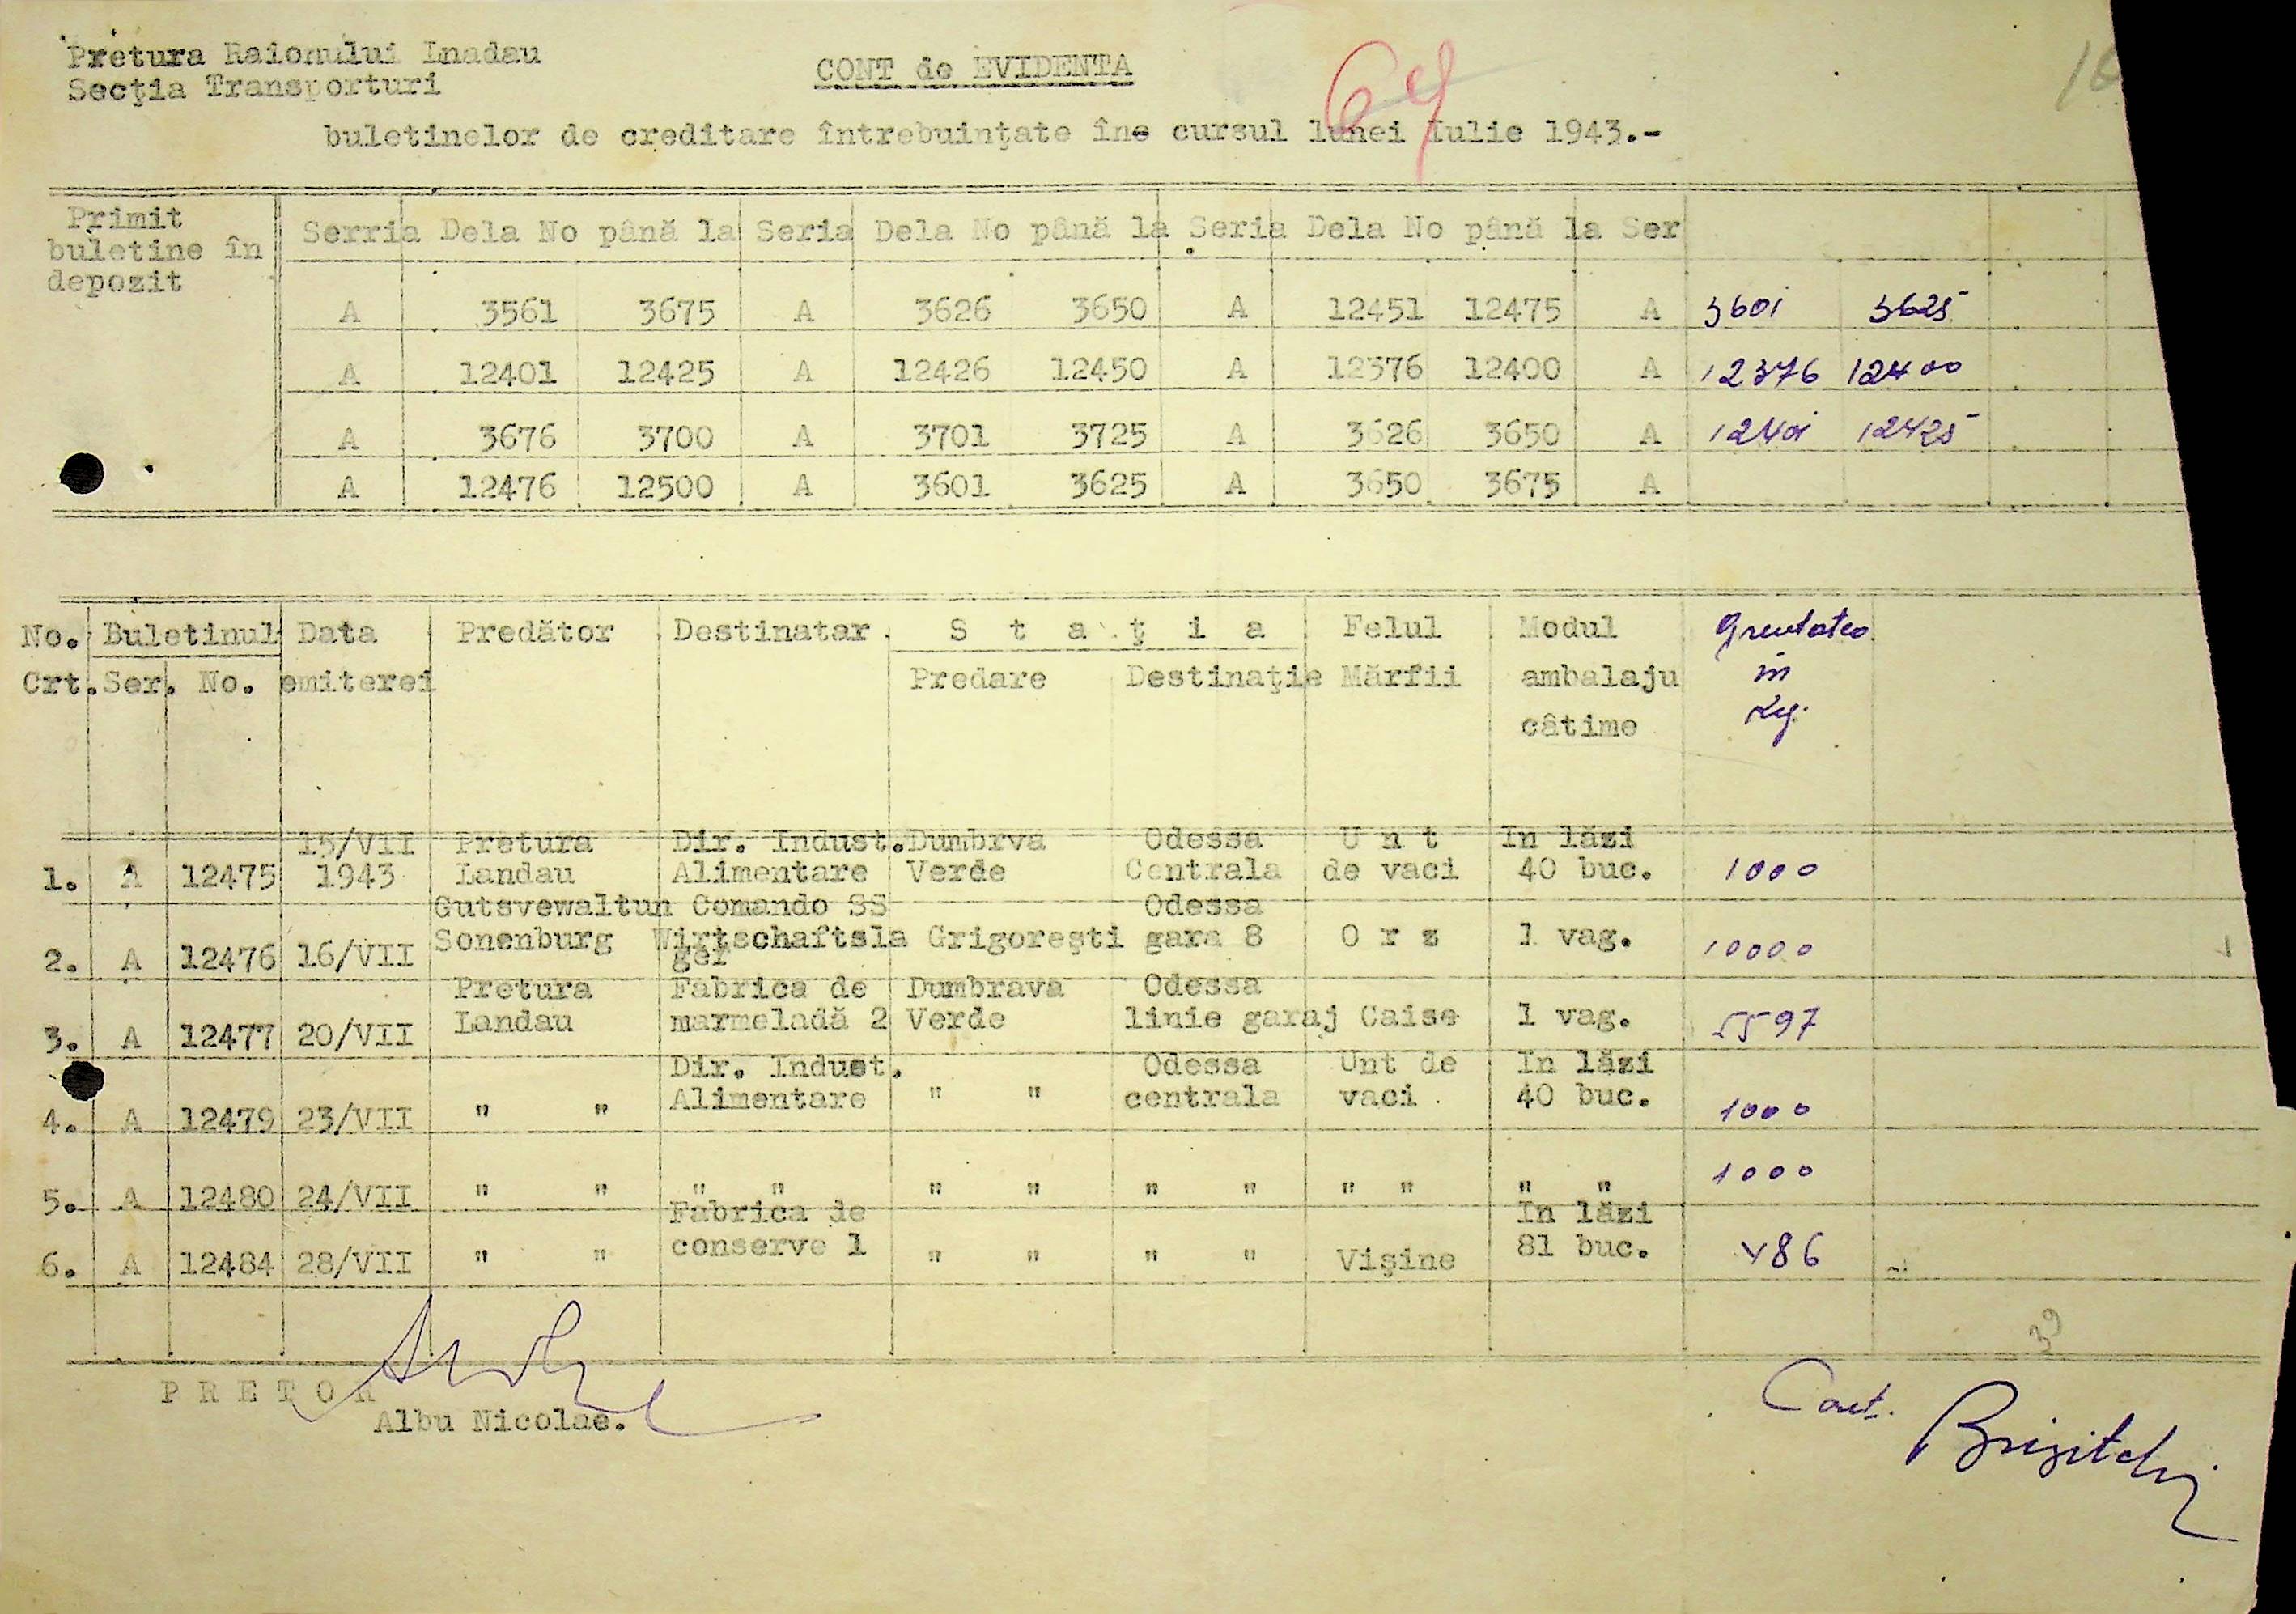 Pretura Raionului Lnadau
Secţia Transporturi
CONT de EVIDENTA
64
buletinelor de creditare întrebuinţate îne cursul lunei Iulie 1943.-
Primit buletine în depozit
Serria Dela No până la Seria Dela No până la Seria Dela No până la Ser
A 3561 3675 A 3626 3650 A 12451 12475 A 3601 3625
A 12401 12425 A 12426 12450 A 12376 12400 A 12376 12400
A 3676 3700 A 3701 3725 A 3626 3650 A 12401 12425
A 12476 12500 A 3601 3625 A 3650 3675 A
No. Buletinul Data Predător Destinatar S t a ţ i a Felul Modul greutatea
Crt. Ser. No. emiterei Predare Destinaţie Mărfii ambalaju in
câtime Kg.
15/VII Pretura Dir. Indust. Dumbrva Odessa U n t In lăzi
1. A 12475 1943 Landau Alimentare Verde Centrala de vaci 40 buc. 1000
Gutsvewaltun Comando SS Odessa
Sonenburg Wirtschaftsla Grigoreşti gara 8 O r z 1 vag.
2. A 12476 16/VII ger 10000
Pretura Fabrica de Dumbrava Odessa
Landau marmeladă 2 Verde linie garaj Caise 1 vag.
3. A 12477 20/VII 5597
Dir. Indust. Odessa Unt de In lăzi
Alimentare " " centrala vaci 40 buc.
4. A 12479 23/VII " " 1000
5. A 12480 24/VII " " " " " " " " " " " " 1000
Fabrica de In lăzi
conserve 1 81 buc.
6. A 12484 28/VII " " " " " " Vişine 486
39
P R E T O R
Albu Nicolae.
Cont.